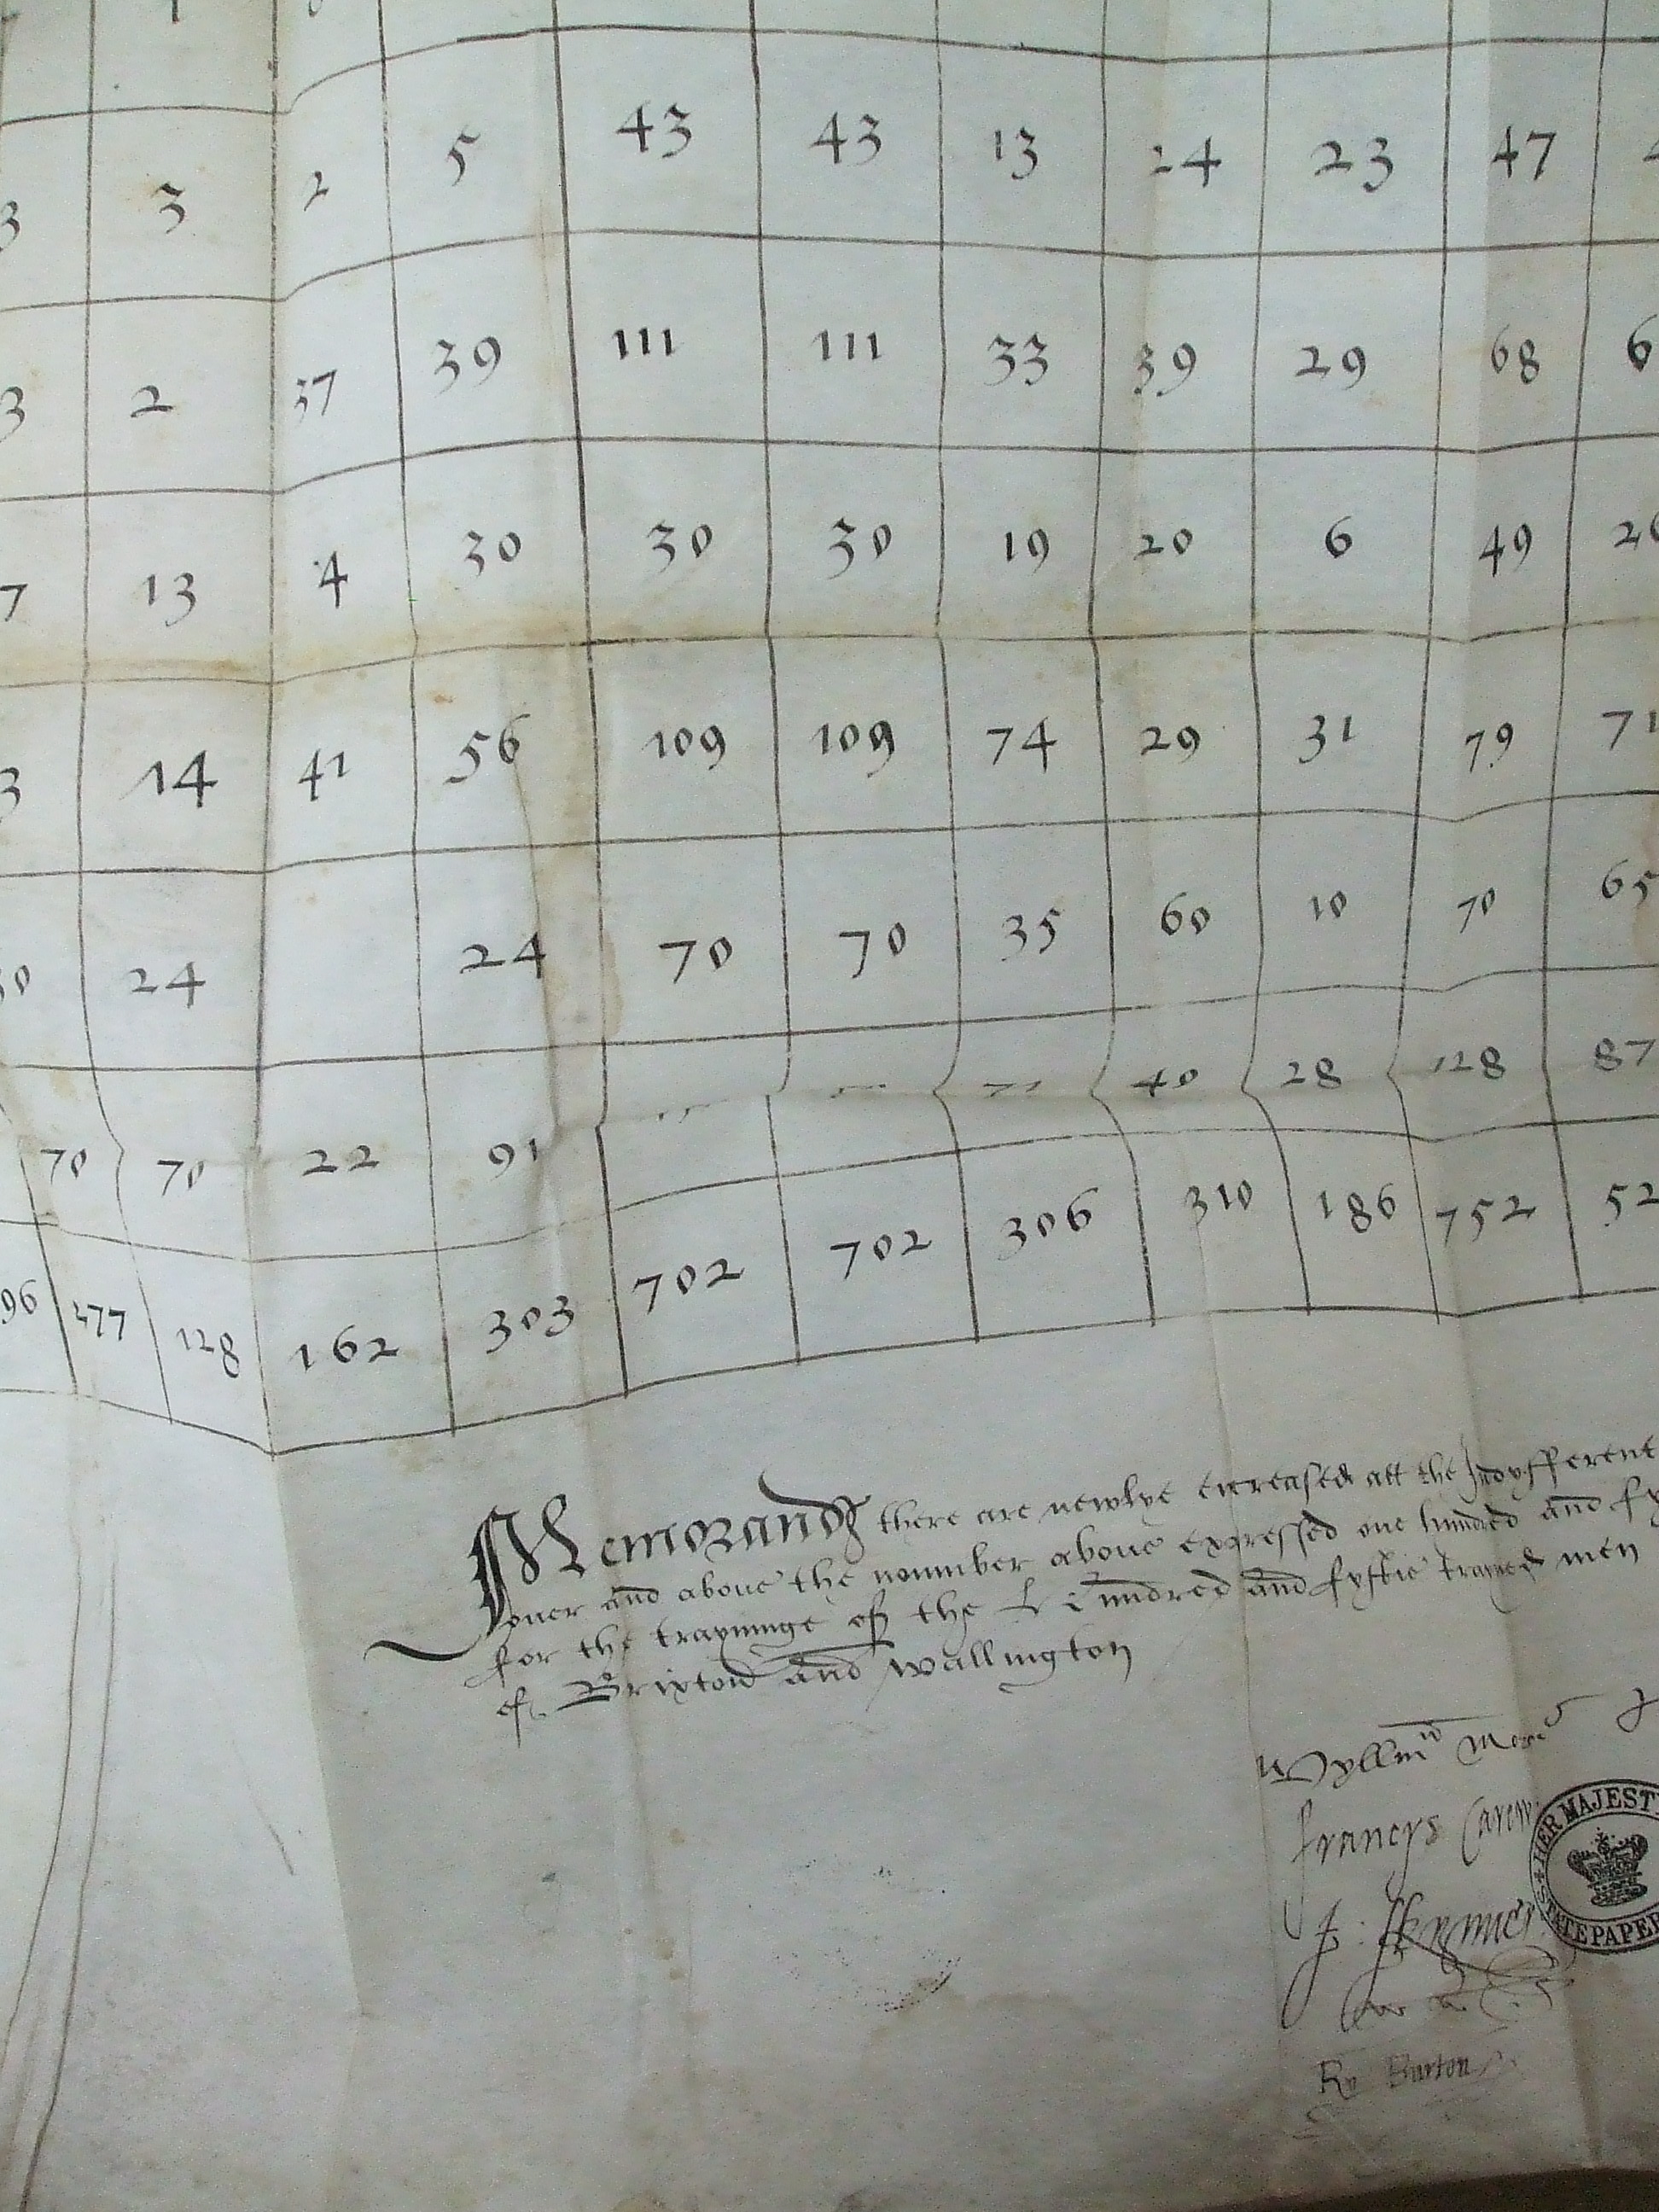 3 3 2 5 43 43 13 24 23 47
3 2 37 39 111 111 33 39 29 68 6
7 13 4 30 30 30 19 20 6 49 26
3 14 41 56 109 109 74 29 31 79 71
24 24 70 70 35 60 10 70 65
70 70 22 91 40 28 128 87
96 277 128 162 303 702 702 306 310 186 752 52
Memorand there are newlye encreased att the Indyfferent
ouer and aboue the nomber aboue expressed one hundred and fy
for the trayninge of the hundred and fyftie trayned men
of Brixton and Wallington
Wyllm More
Francys Carew
HER MAJEST
STATE PAPER
J:
Ry Burton